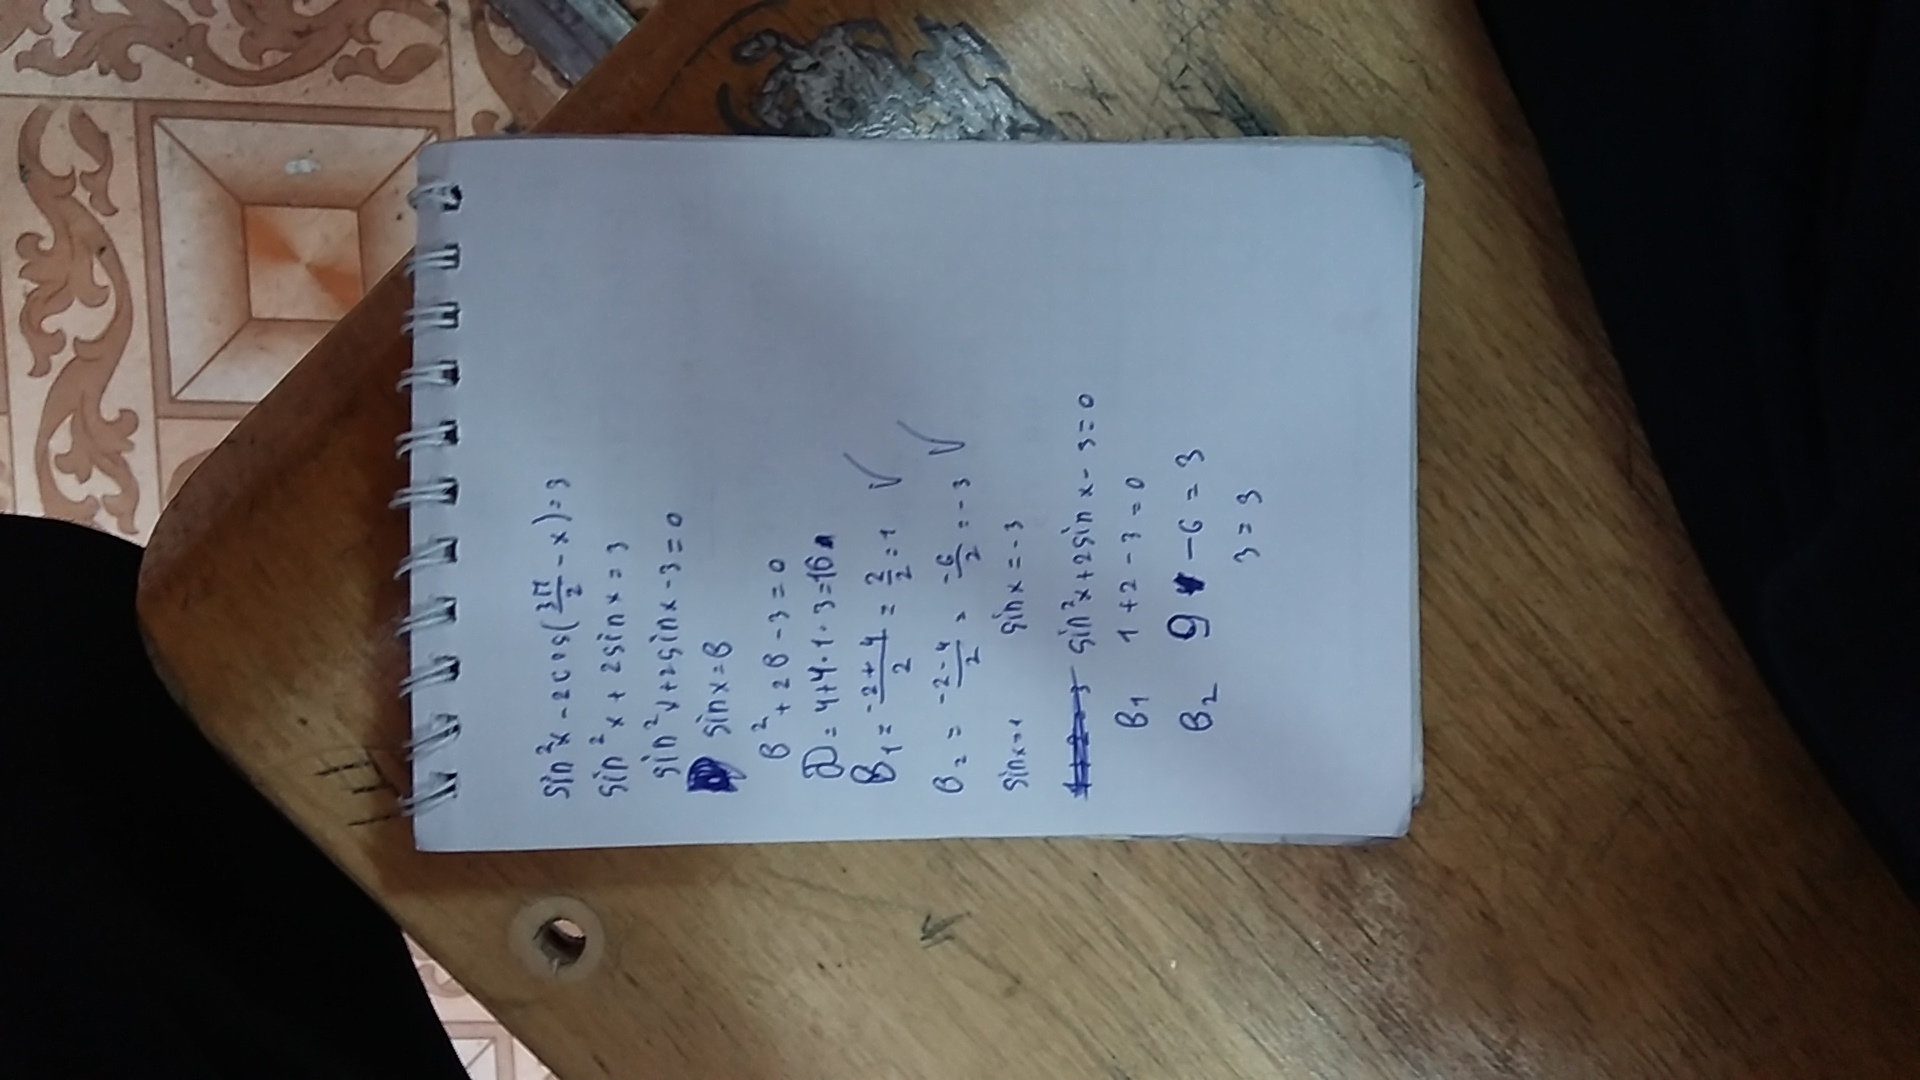 sin²x - 2cos(3π/2 - x) = 3
sin²x + 2sinx = 3
sin²x + 2sinx - 3 = 0
sinx = B
B² + 2B - 3 = 0
D = 4+4·1·3=16
B₁ = -2+4/2 = 2/2 = 1 ✓
B₂ = -2-4/2 = -6/2 = -3 ✓
sinx=1 sinx = -3
sin²x+2sinx - 3 = 0
B₁ 1+2-3=0
B₂ 9 -6 = 3
3 = 3